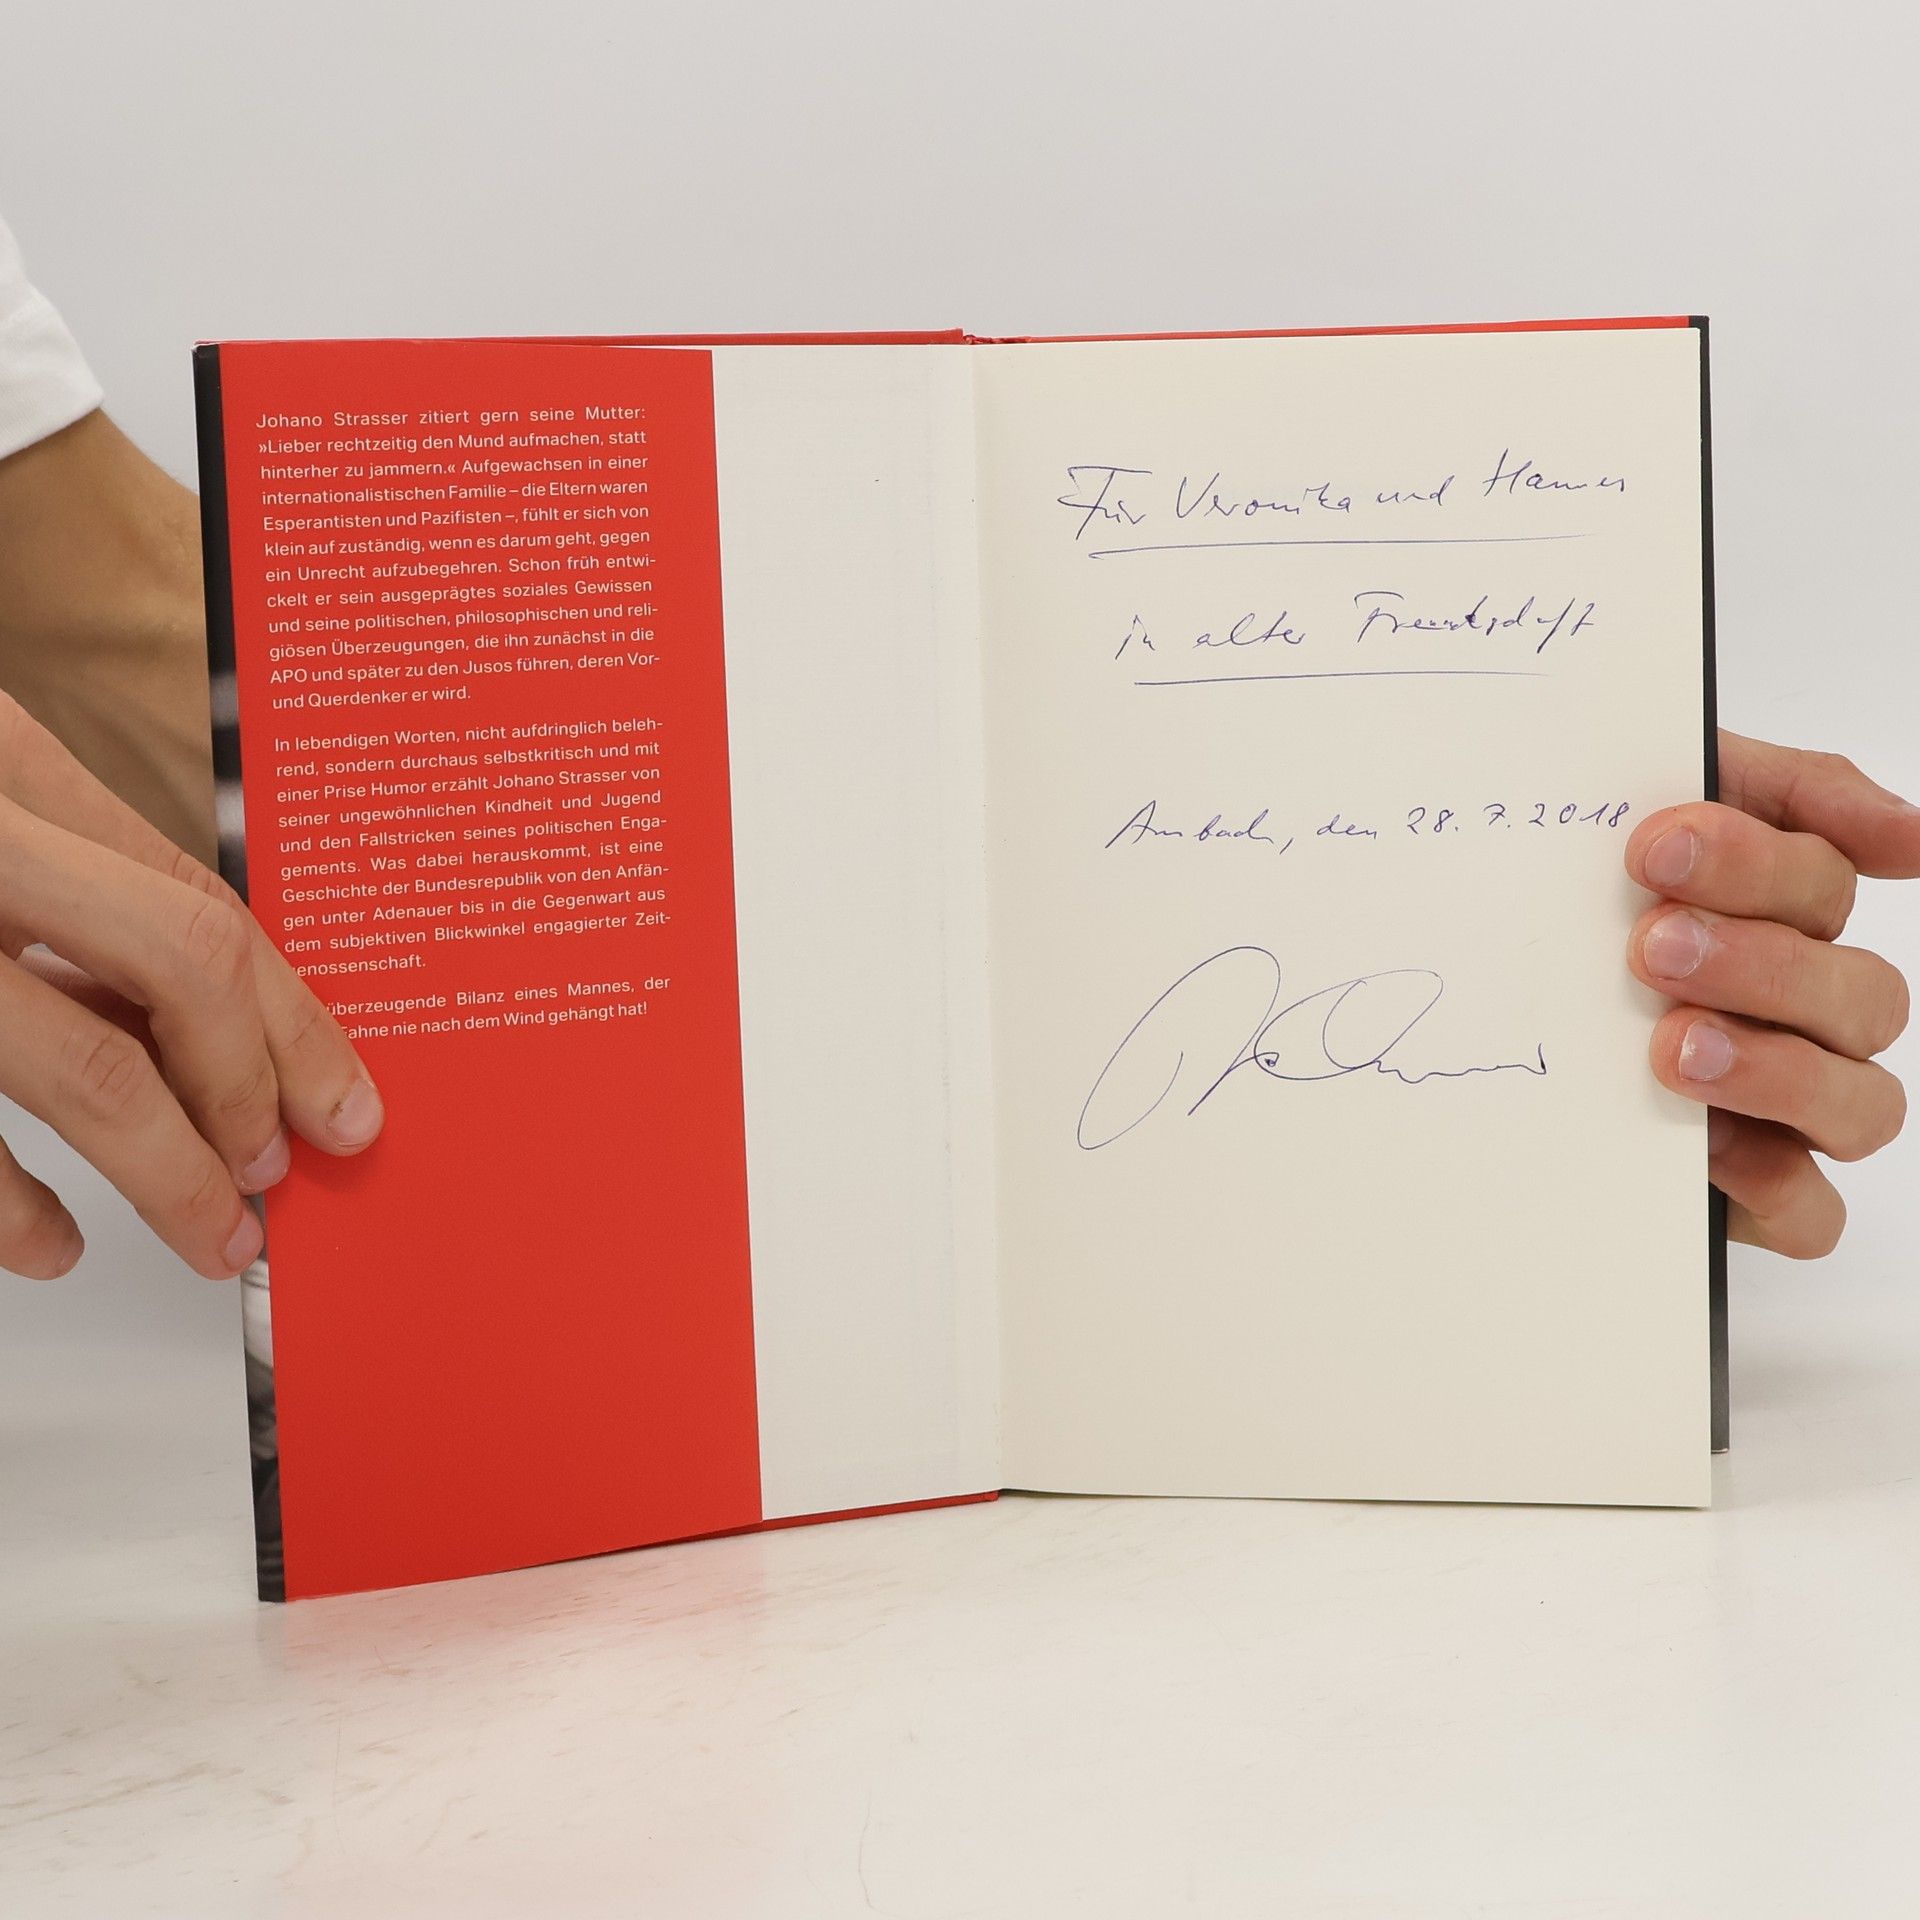 Johano Strasser zitiert gern seine Mutter:
»Lieber rechtzeitig den Mund aufmachen, statt
hinterher zu jammern.« Aufgewachsen in einer
internationalistischen Familie – die Eltern waren
Esperantisten und Pazifisten –, fühlt er sich von
klein auf zuständig, wenn es darum geht, gegen
ein Unrecht aufzubegehren. Schon früh entwi-
ckelt er sein ausgeprägtes soziales Gewissen
und seine politischen, philosophischen und reli-
giösen Überzeugungen, die ihn zunächst in die
APO und später zu den Jusos führen, deren Vor-
und Querdenker er wird.
In lebendigen Worten, nicht aufdringlich beleh-
rend, sondern durchaus selbstkritisch und mit
einer Prise Humor erzählt Johano Strasser von
seiner ungewöhnlichen Kindheit und Jugend
und den Fallstricken seines politischen Enga-
gements. Was dabei herauskommt, ist eine
Geschichte der Bundesrepublik von den Anfän-
gen unter Adenauer bis in die Gegenwart aus
dem subjektiven Blickwinkel engagierter Zeit-
enossenschaft.
überzeugende Bilanz eines Mannes, der
Fahne nie nach dem Wind gehängt hat!
Für Veronika und Hannes
in alter Freundschaft
Ansbach, den 28. 7. 2018